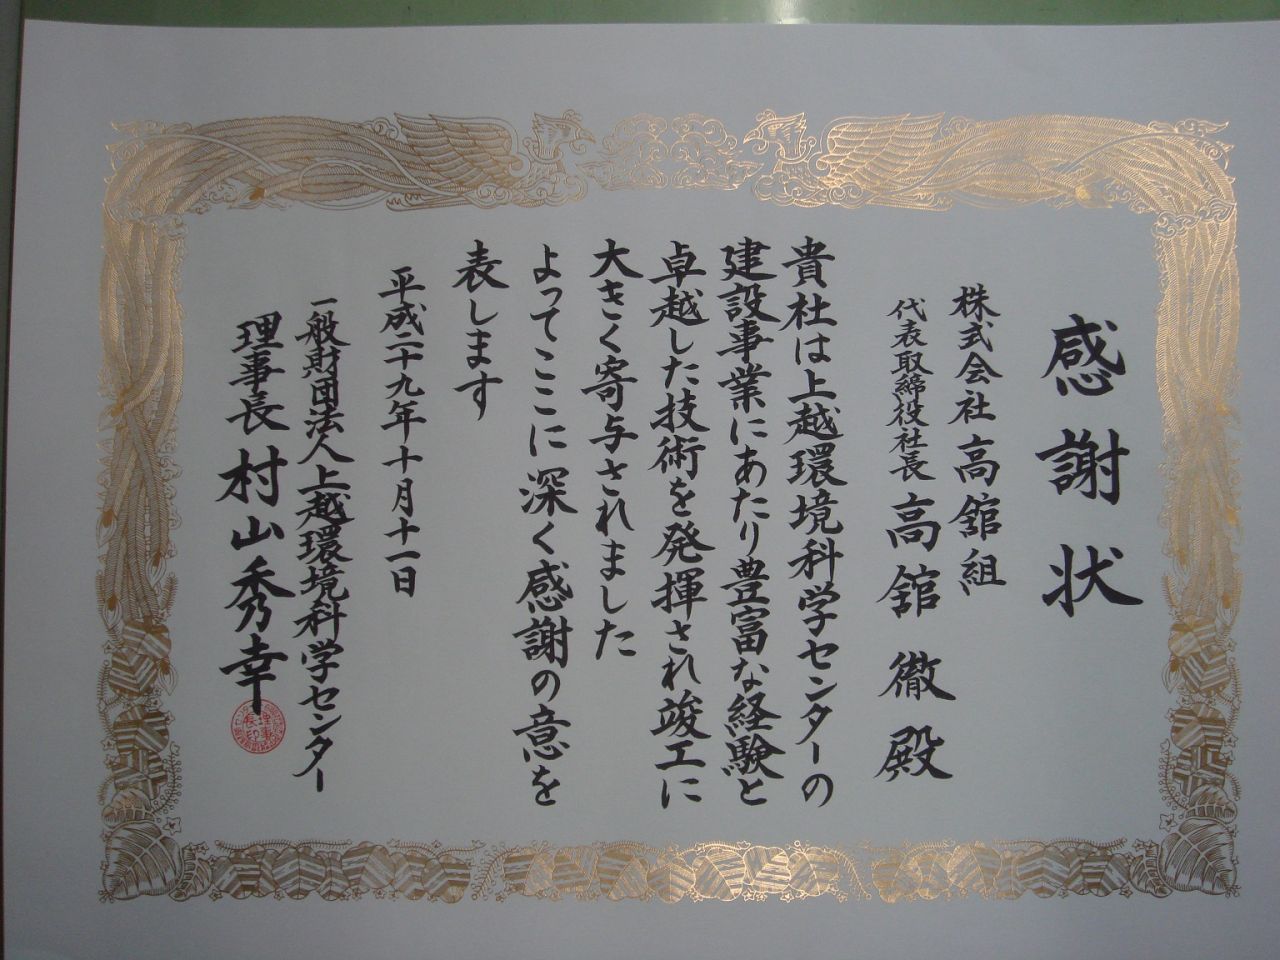 感謝状
株式会社 高舘組
代表取締役社長 高舘 徹 殿
貴社は上越環境科学センターの
建設事業にあたり豊富な経験と
卓越した技術を発揮され竣工に
大きく寄与されました
よってここに深く感謝の意を
表します
平成二十九年十月十一日
一般財団法人上越環境科学センター
理事長 村山秀幸
理事
長印